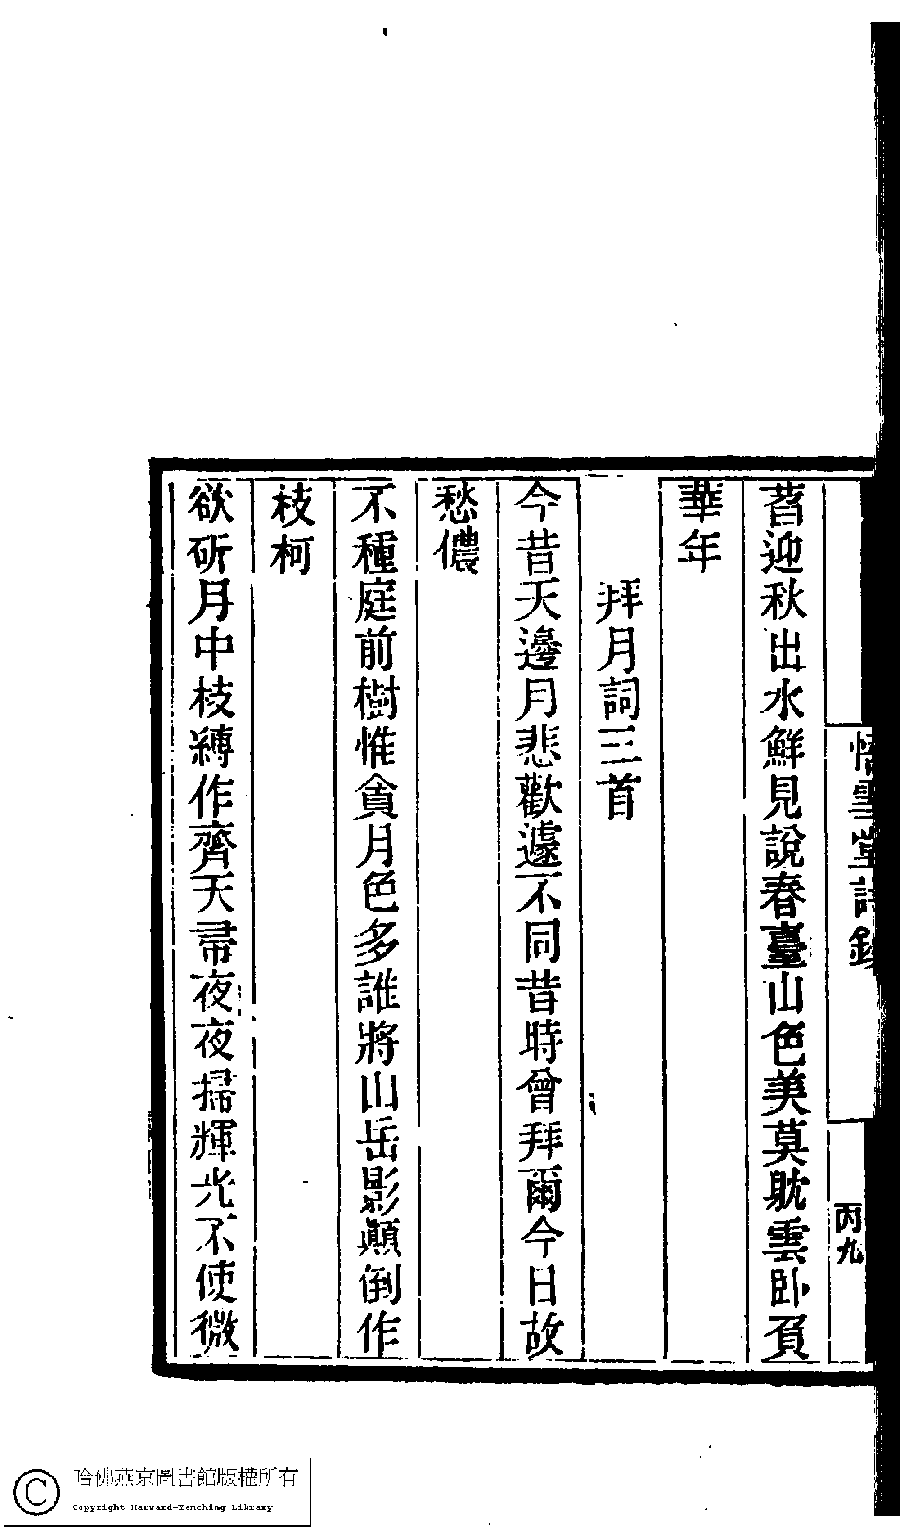 迎秋出水鮮見說春臺山色美莫躭雲卧負
華年
拜月詞三首
今昔天邊月悲歡遽不同昔時曾拜爾今日故
愁儂
不種庭前樹惟貪月色多誰將山岳影顛倒作
枝柯
欲斫月中枝縛作齊天帚夜夜掃輝光不使微
悟雪堂詩鈔
丙九
哈佛燕京圖書館版權所有
Copyright Harvard-Yenching Library